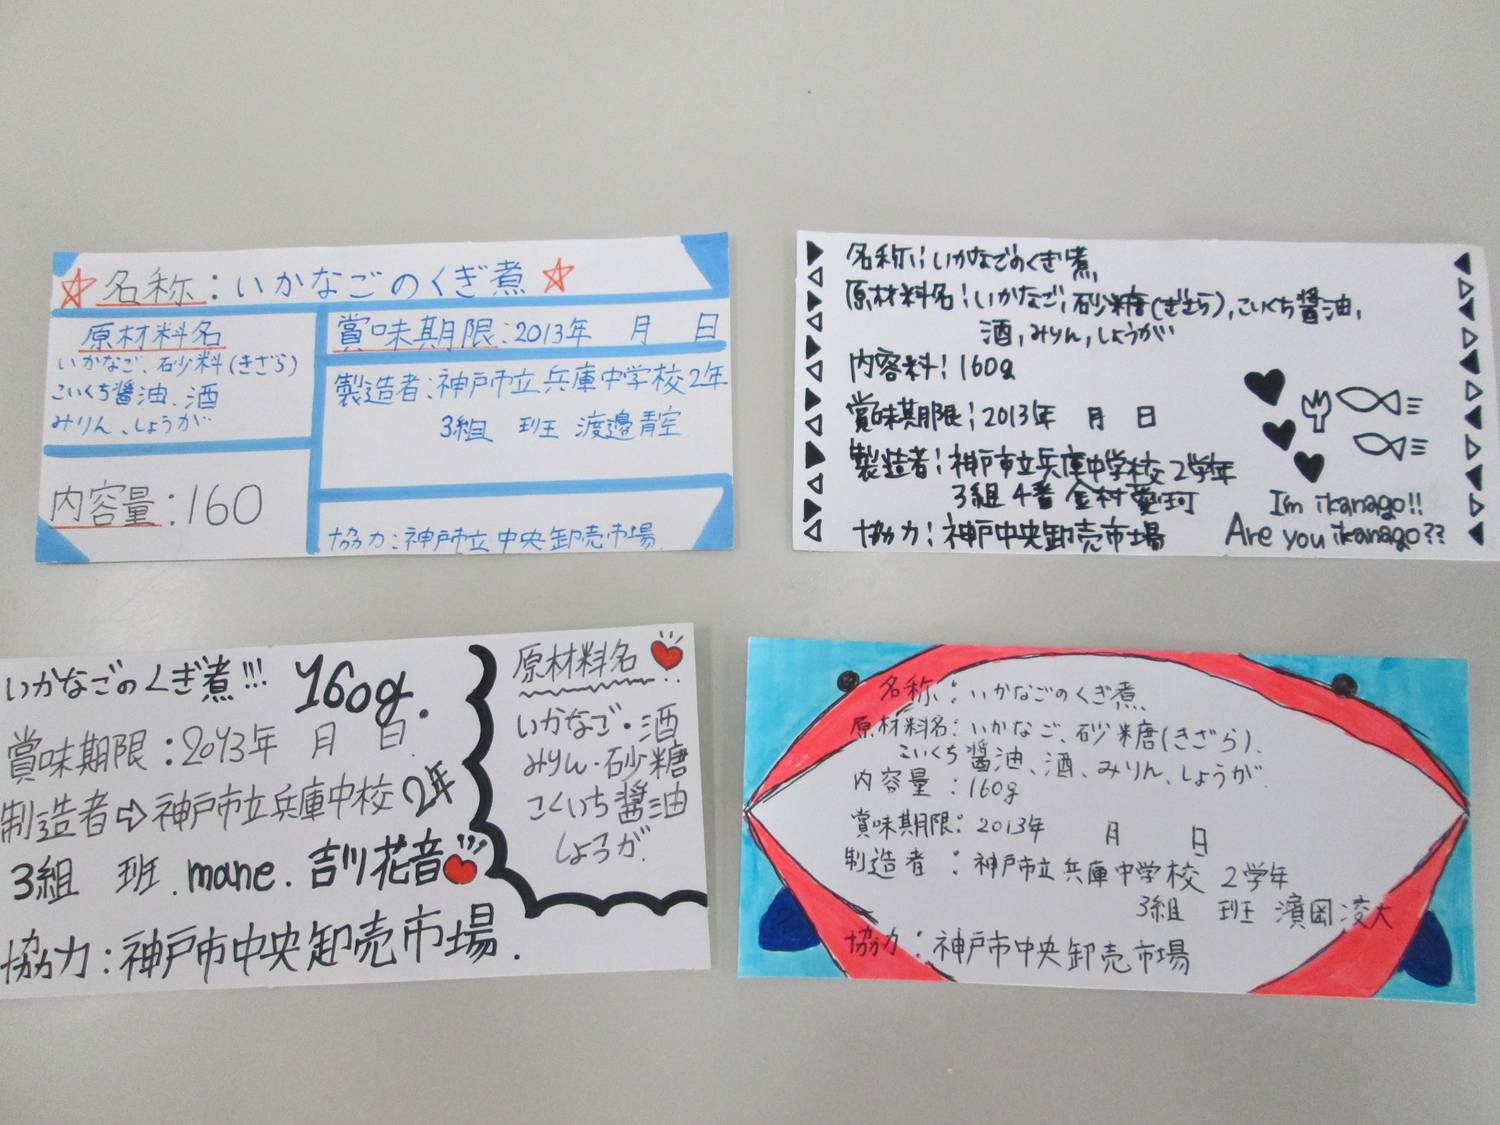 ☆名称：いかなごのくぎ煮☆
原材料名
いかなご、砂料(きざら)
こいくち醤油、酒
みりん、しょうが
内容量：160
賞味期限：2013年 月 日
製造者：神戸市立兵庫中学校2年
3組 班 渡邉青空
協力：神戸市立中央卸売市場
名称：いかなごのくぎ煮
原材料名：いかなご，砂糖(ぎざら)，こいくち醤油，
酒，みりん，しょうが
内容料：160g
賞味期限：2013年 月 日
製造者：神戸市立兵庫中学校2学年
3組 4番 金村愛珂
協力：神戸中央卸売市場
I'm ikanago!!
Are you ikanago??
いかなごのくぎ煮!!! 160g.
賞味期限：2013年 月 日
制造者⇨神戸市立兵庫中校2年
3組 班.mane.吉川花音
協力：神戸市中央卸売市場.
原材料名
いかなご・酒
みりん・砂糖
こくいち醤油
しょうが
名称：いかなごのくぎ煮
原材料名：いかなご、砂糖(きざら)、
こいくち醤油、酒、みりん、しょうが
内容量：160g
賞味期限：2013年 月 日
制造者：神戸市立兵庫中学校 2学年
3組 班 濱岡凌大
協力：神戸市中央卸売市場